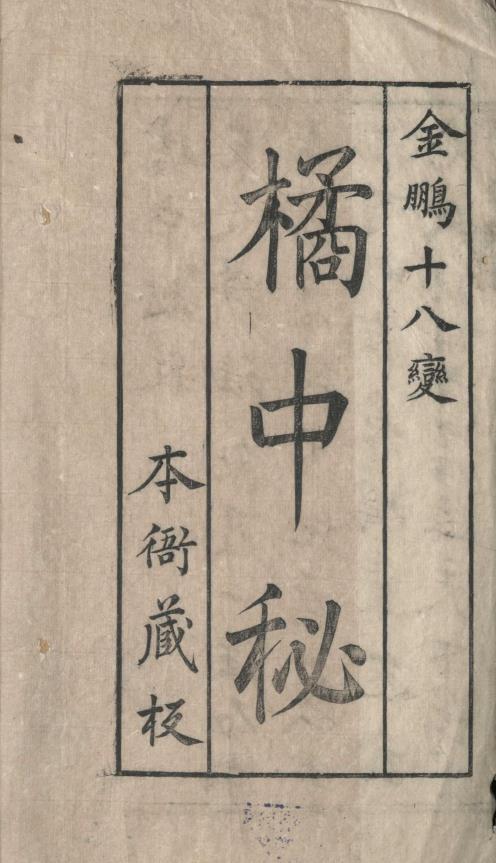 金鵬十八變
橘中秘
本衙藏板